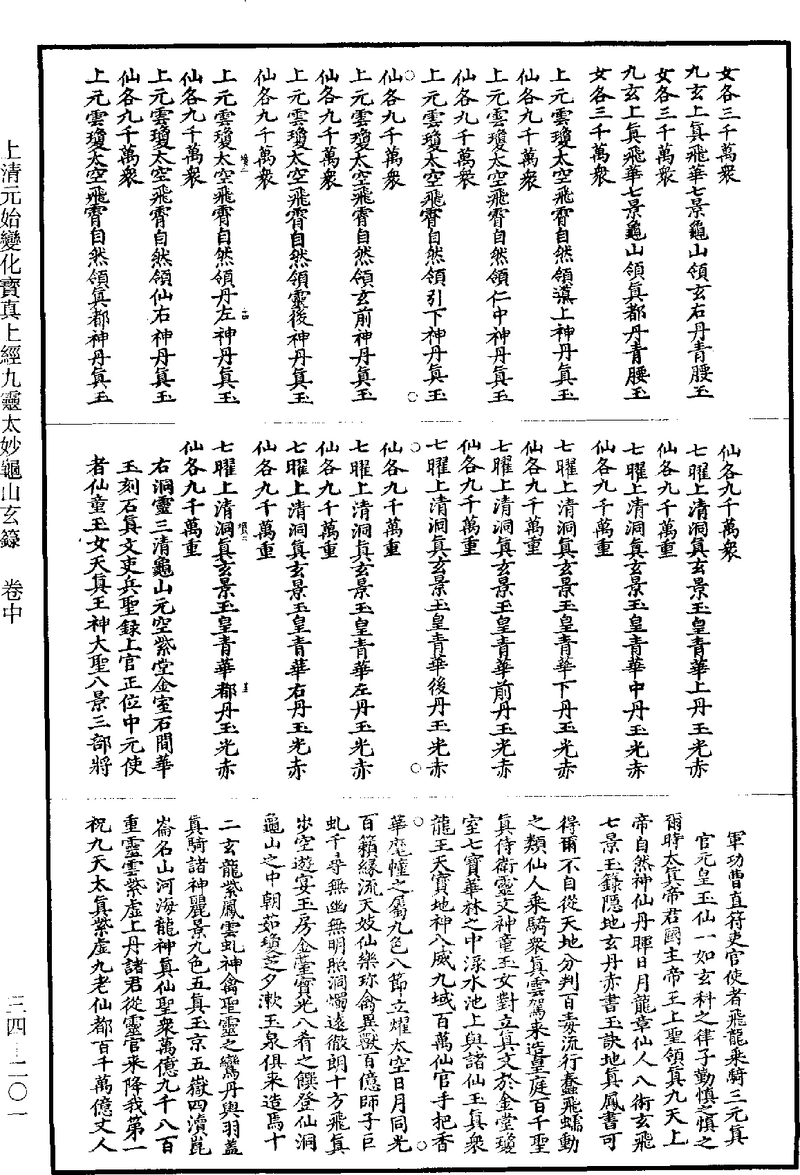 女各三千萬衆
九玄上眞飛華七景龜山領玄右丹青腰玉
女各三千萬衆
九玄上眞飛華七景龜山領眞都丹青腰玉
女各三千萬衆
上元雲瓊太空飛霄自然領滇上神丹眞玉
仙各九千萬衆
上元雲瓊太空飛霄自然領仁中神丹眞玉
仙各九千萬衆
上元雲瓊太空飛霄自然領引下神丹眞玉
仙各九千萬衆
上元雲瓊太空飛霄自然領玄前神丹眞玉
仙各九千萬衆
上元雲瓊太空飛霄自然領靈後神丹眞玉
仙各九千萬衆
上元雲瓊太空飛霄自然領丹左神丹眞玉
仙各九千萬衆
上元雲瓊太空飛霄自然領仙右神丹眞玉
仙各九千萬衆
上元雲瓊太空飛霄自然領眞都神丹眞玉
仙各九千萬衆
七曜上清洞眞玄景玉皇青華上丹玉光赤
仙各九千萬重
七曜上清洞眞玄景玉皇青華中丹玉光赤
仙各九千萬重
七曜上清洞眞玄景玉皇青華下丹玉光赤
仙各九千萬重
七曜上清洞眞玄景玉皇青華前丹玉光赤
仙各九千萬重
七曜上清洞眞玄景玉皇青華後丹玉光赤
仙各九千萬重
七曜上清洞眞玄景玉皇青華左丹玉光赤
仙各九千萬重
七曜上清洞眞玄景玉皇青華右丹玉光赤
仙各九千萬重
七曜上清洞眞玄景玉皇青華都丹玉光赤
仙各九千萬重
右洞靈三清龜山元空紫堂金室石間華
玉刻石眞文吏兵聖録上官正位中元使
者仙童玉女天眞王神大聖八景三部將
軍功曹直符吏官使者飛龍乘騎三元眞
官元皇玉仙一如玄科之律子勤慎之慎之
爾時太眞帝君國主帝王上聖領眞九天上
帝自然神仙丹暉日月龍章仙人八術玄飛
七景玉錄隱地玄丹赤書玉訣地眞鳳書可
得爾不自從天地分判百毒流行蠢飛蠕動
之類仙人乘騎衆眞雲駕来造皇庭百千聖
眞侍衛靈文神童玉女對立眞文於金堂瓊
室七寶華林之中渌水池上與諸仙玉眞衆
龍王天寶地神八威九域百萬仙官手把香
華麾幢之屬九色八節立燿太空日月同光
百籟緣流天妓仙樂珍禽異獸百億師子巨
虬千尋無幽無明照洞燭遠徹朗十方飛眞
步空遊宴玉房金臺寶光八肴之饌登仙洞
龜山之中朝茹瓊芝夕漱玉泉俱來造焉十
二玄龍紫鳳雲虬神禽聖靈之鸞丹輿羽蓋
眞騎諸神麗景九色五眞玉京五嶽四瀆崑
崙名山河海龍神眞仙聖衆萬億九千八百
重靈雲紫虚上丹諸君從靈官来降我第一
祝九天太眞紫虚九老仙都百千萬億丈人
上清元始變化寶真上經九靈太妙龜山玄籙 卷中
三四—二〇一